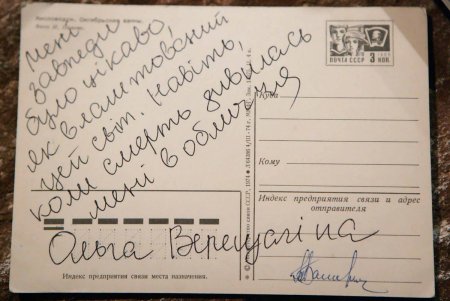 Кисловодск. Октябрьские ванны.
мені
завжди
було цікаво,
як влаштований
цей світ. Навіть,
коли смерть дивилась
мені в обличчя
Ольга Верещагіна
ПОЧТА СССР
3
КОП
Куда
Кому
Индекс предприятия связи и адрес
отправителя
Индекс предприятия связи места назначения.